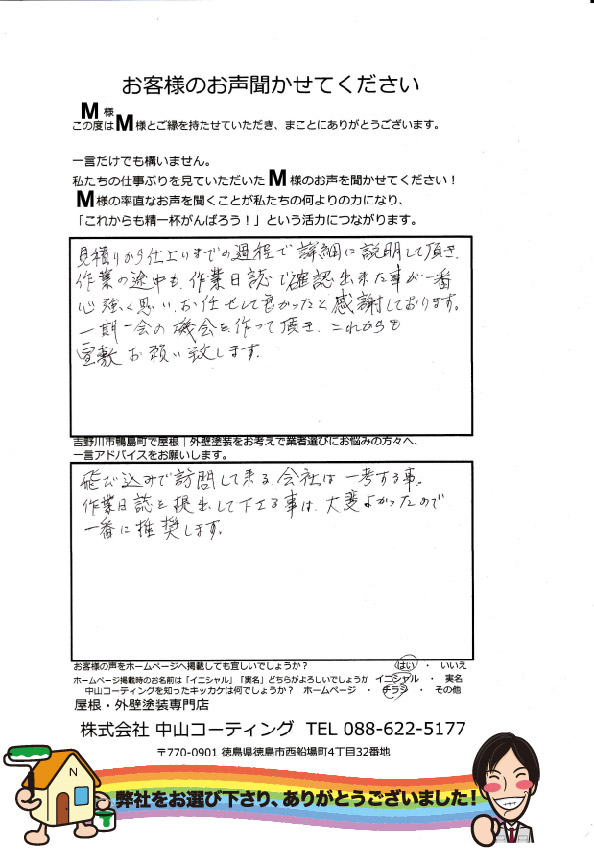 お客様のお声聞かせてください
M様
この度はM様とご縁を持たせていただき、まことにありがとうございます。
一言だけでも構いません。
私たちの仕事ぶりを見ていただいたM様のお声を聞かせてください！
M様の率直なお声を聞くことが私たちの何よりの力になり、
「これからも精一杯がんばろう！」という活力につながります。
見積りから仕上りまでの過程で詳細に説明して頂き、
作業の途中も、作業日誌で確認出来た事が一番
心強く思い、お任せして良かったと感謝しております。
一期一会の機会を作って頂き、これからも
宜敷お願い致します。
吉野川市鴨島町で屋根｜外壁塗装をお考えで業者選びにお悩みの方々へ、
一言アドバイスをお願いします。
飛び込みで訪問して来る会社は一考する事。
作業日誌を提出して下さる事は、大変よかったので
一番に推奨します。
お客様の声をホームページへ掲載しても宜しいでしょうか？ はい ・ いいえ
ホームページ掲載時のお名前は「イニシャル」「実名」どちらがよろしいでしょうか イニシャル ・ 実名
中山コーティングを知ったキッカケは何でしょうか？ ホームページ ・ チラシ ・ その他
屋根・外壁塗装専門店
株式会社 中山コーティング TEL 088-622-5177
〒770-0901 徳島県徳島市西船場町4丁目32番地
N
弊社をお選び下さり、ありがとうございました！